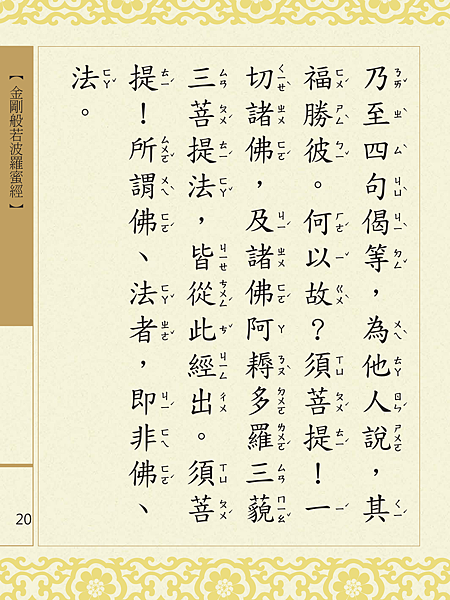 乃至四句偈等，為他人說，其
福勝彼。何以故？須菩提！一
切諸佛，及諸佛阿耨多羅三藐
三菩提法，皆從此經出。須菩
提！所謂佛、法者，即非佛、
法。
【金剛般若波羅蜜經】
20